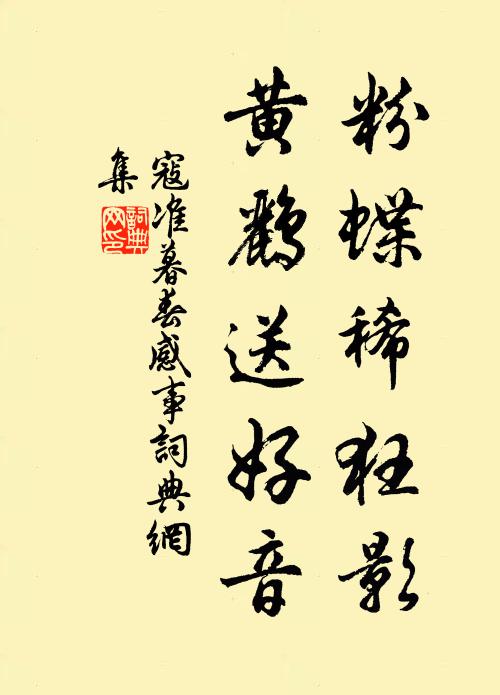 粉蝶稀狂影
黄鹂送好音
寇准暮春感事詞典網
集
詞典
网印